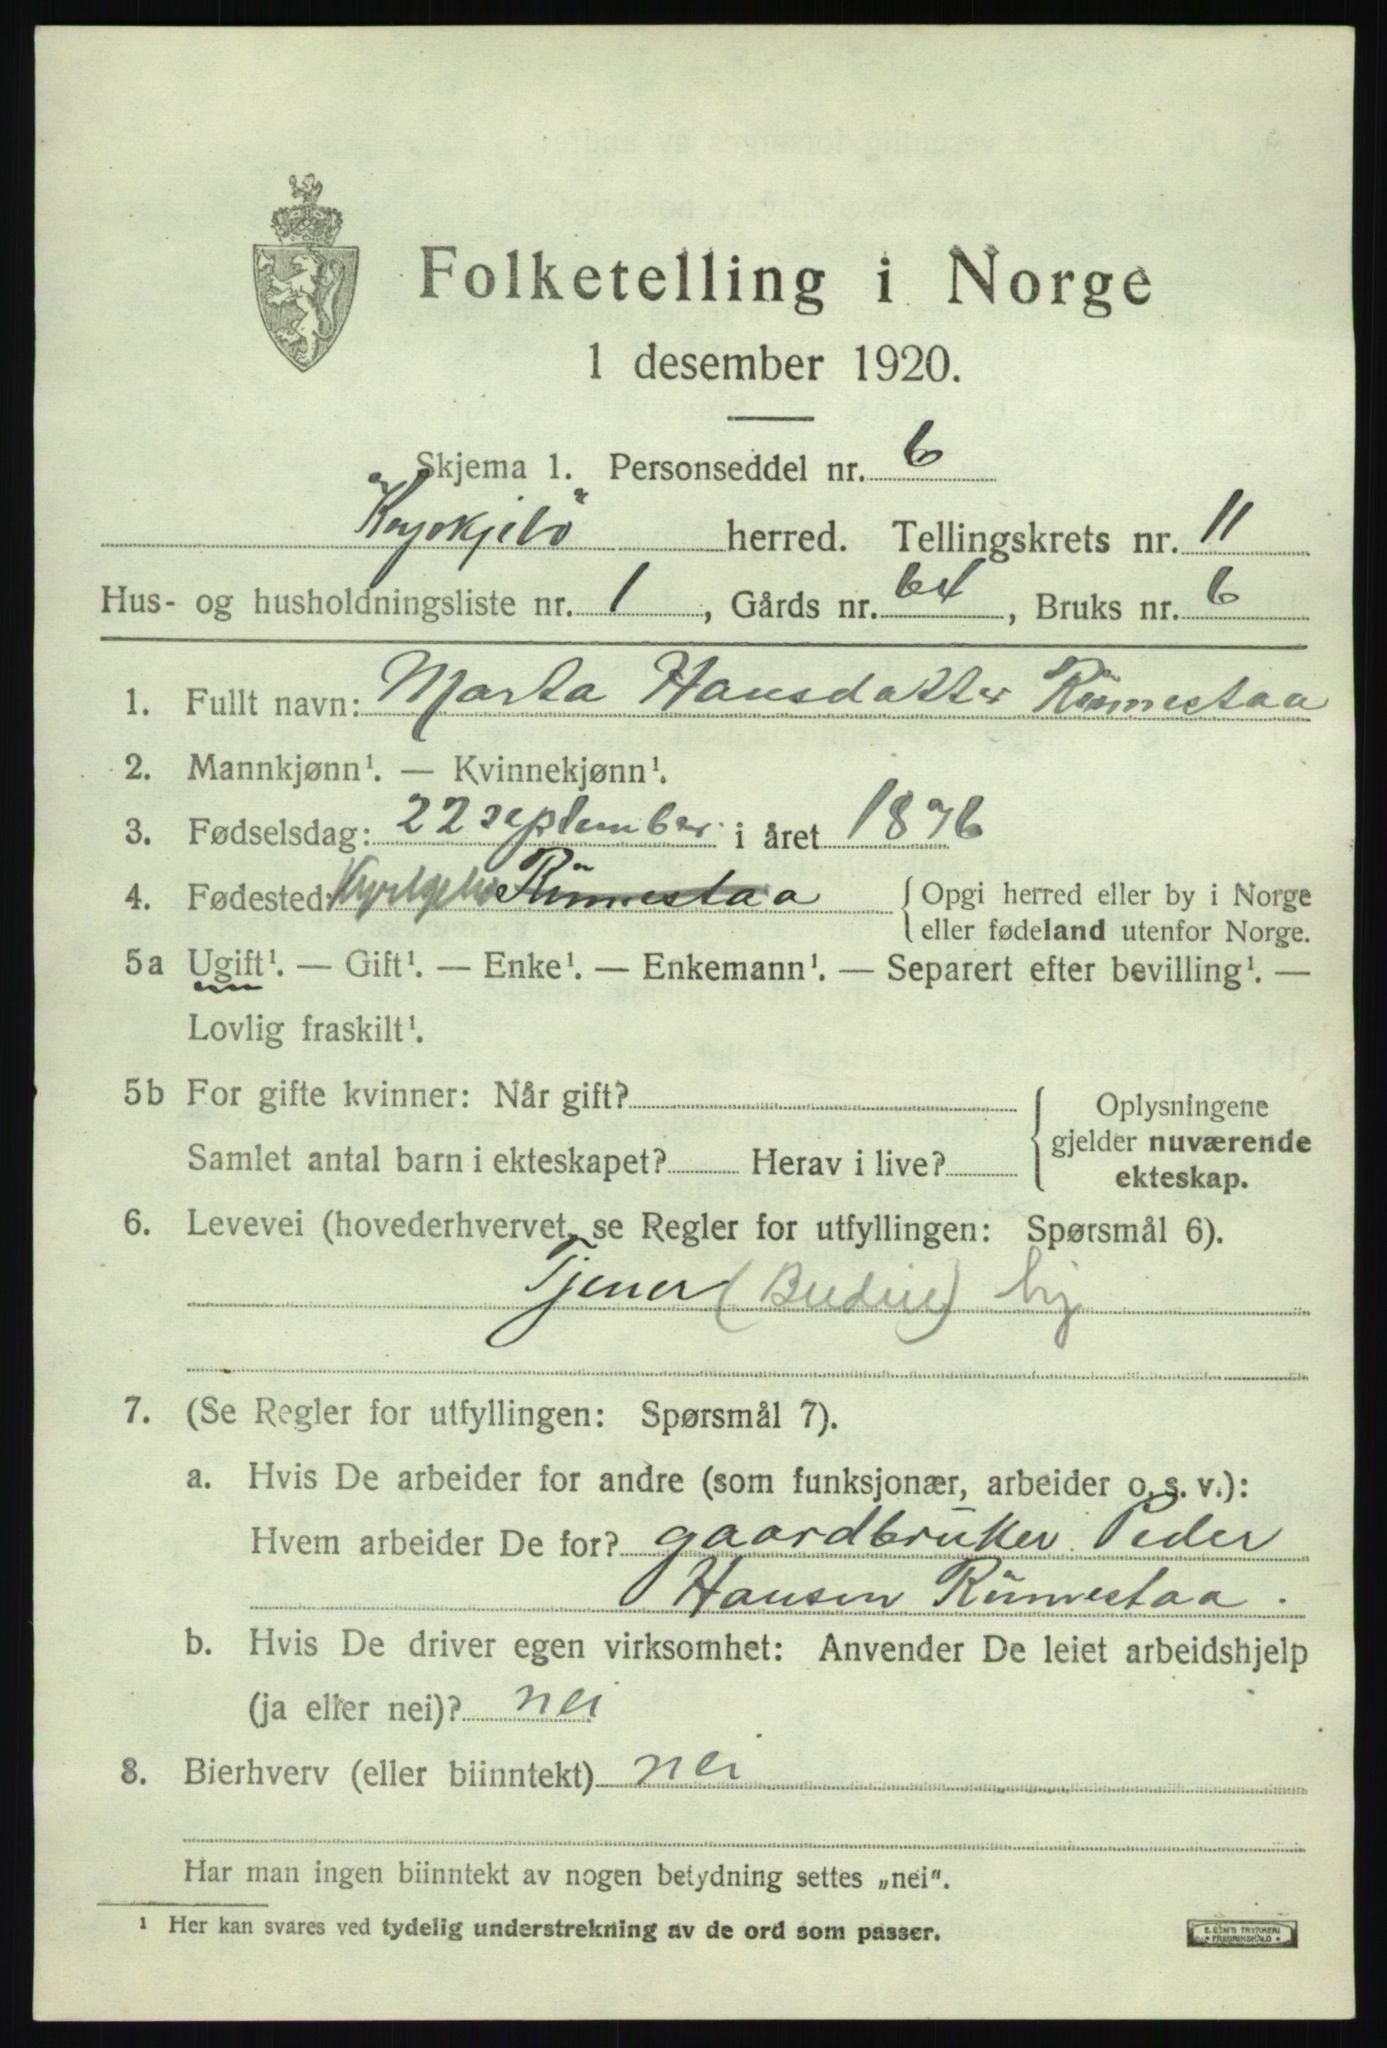 Folketelling i Norge
1 desember 1920.
Skjema 1. Personseddel nr. 6
Kyrkjebö herred. Tellingskrets nr. 11
Hus- og husholdningsliste nr. 1, Gårds nr. 64, Bruks nr. 6
1. Fullt navn: Marta Hansdatter Rünnestaa
2. Mannkjønn¹. — Kvinnekjønn¹.
3. Fødselsdag: 22 september i året 1896
4. Fødested: Rünnestaa { Opgi herred eller by i Norge
eller fødeland utenfor Norge.
5a Ugift¹. — Gift¹. — Enke¹. — Enkemann¹. — Separert efter bevilling¹. —
Lovlig fraskilt¹.
5b For gifte kvinner: Når gift? { Oplysningene
gjelder nuværende
Samlet antal barn i ekteskapet? Herav i live?
ekteskap.
6. Levevei (hovederhvervet, se Regler for utfyllingen: Spørsmål 6).
Tjener (Budeie)
7. (Se Regler for utfyllingen: Spørsmål 7).
a. Hvis De arbeider for andre (som funksjonær, arbeider o. s. v.):
Hvem arbeider De for? gaardbruker Peder
Hansen Rünnestaa.
b. Hvis De driver egen virksomhet: Anvender De leiet arbeidshjelp
(ja eller nei)? nei
8. Bierhverv (eller biinntekt) nei
Har man ingen biinntekt av nogen betydning settes „nei“.
¹ Her kan svares ved tydelig understrekning av de ord som passer.